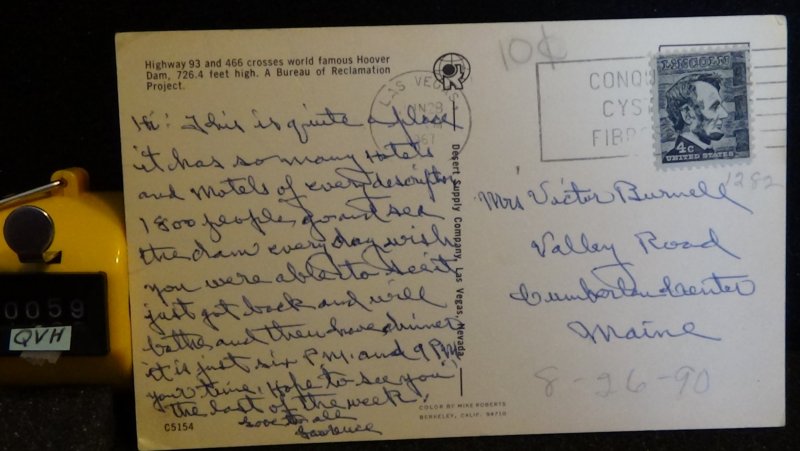 Highway 93 and 466 crosses world famous Hoover
Dam, 726.4 feet high. A Bureau of Reclamation
Project.
Hi: This is quite a place
it has so many Hotels
and Motels of every description
1800 people go and see
the dam every day wish
you were able to see it
just got back and will
bathe and then have dinner
it is just six P.M. and 9 P.M.
your time, Hope to see you
the last of the week.
Love to all
C5154
Desert Supply Company, Las Vegas, Nevada
COLOR BY MIKE ROBERTS
BERKELEY, CALIF. 94710
10¢
LAS VEGAS
28
1967
CONQU
CYST
FIBRO
LINCOLN
4c
UNITED STATES
1282
Mrs Victor Burnell
Valley Road
Cumberland Center
Maine
8-26-90
0059
QVH